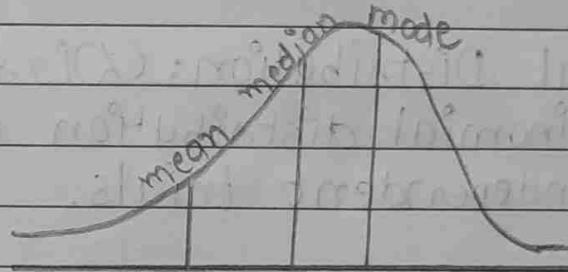 mean
median
mode